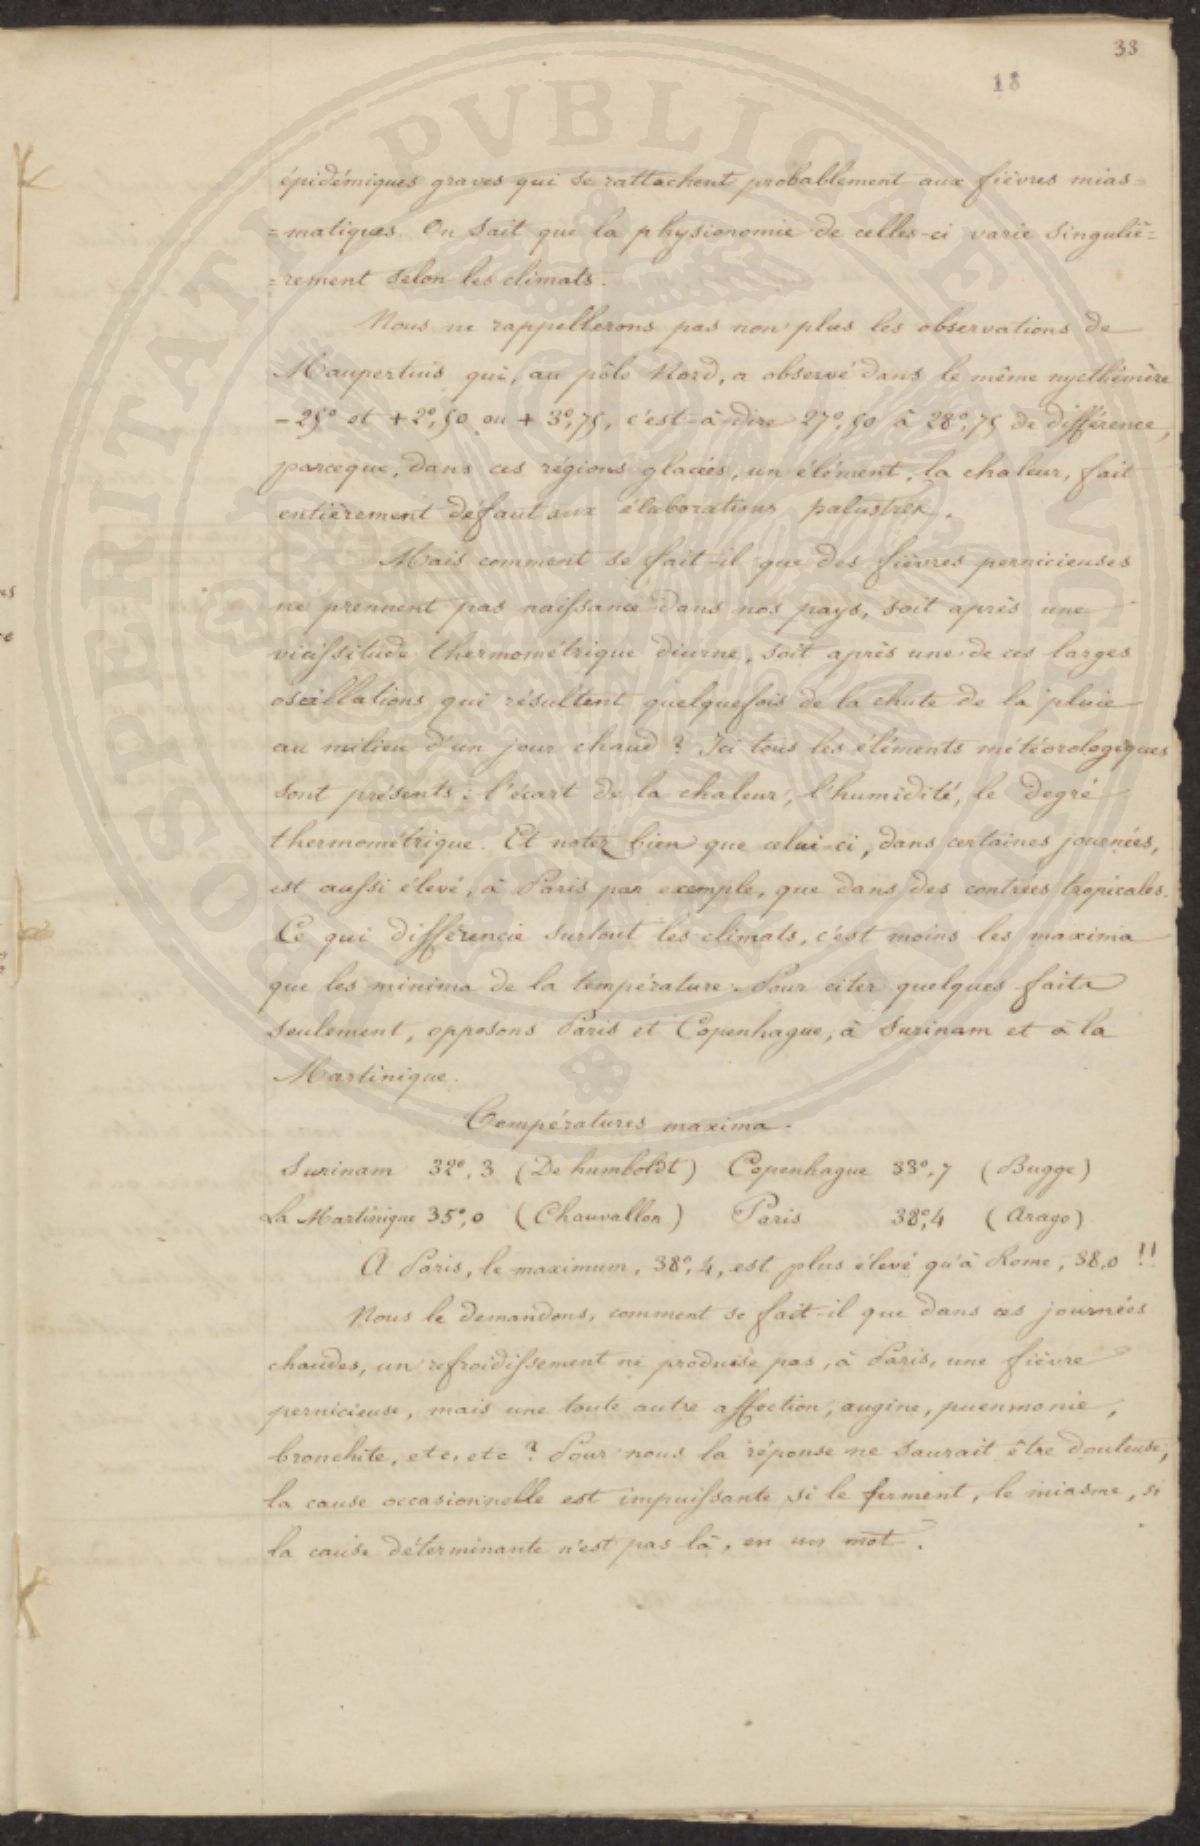 33
18
épidémiques graves qui se rattachent probablement aux fièvres mias=
=matiques. On sait que la physionomie de celles-ci varie singuliè=
=rement selon les climats.
Nous ne rappellerons pas non plus les observations de
Maupertuis qui, au pôle Nord, a observé dans le même nycthémère
-25° et +2°,50 ou + 3°,75, c'est-à-dire 27°,50 à 28°,75 de différence,
parceque, dans ces régions glacées, un élément, la chaleur, fait
entièrement défaut aux élaborations palustres.
Mais comment se fait-il que des fièvres pernicieuses
ne prennent pas naissance dans nos pays, soit après une
vicissitude thermométrique diurne, soit après une de ces larges
oscillations qui résultent quelquefois de la chute de la pluie
au milieu d'un jour chaud? Ici tous les éléments météorologiques
sont présents: l'écart de la chaleur, l'humidité, le degré
thermométrique. Et notez bien que celui-ci, dans certaines journées,
est aussi élevé, à Paris par exemple, que dans des contrées tropicales.
Ce qui différencie surtout les climats, c'est moins les maxima
que les minima de la température. Pour citer quelques faits
seulement, opposons Paris et Copenhague, à Surinam et à la
Martinique.
Températures maxima.
Surinam 32°,3 (De humboldt) Copenhague 33°,7 (Bugge)
La Martinique 35°,0 (Chauvallon) Paris 38°,4 (Arago)
A Paris, le maximum, 38°,4, est plus élevé qu'à Rome, 38,0 !!
Nous le demandons, comment se fait-il que dans ces journées
chaudes, un refroidissement ne produise pas, à Paris, une fièvre
pernicieuse, mais une toute autre affection, angine, pnenmonie,
bronchite, etc, etc? Pour nous la réponse ne saurait être douteuse,
la cause occasionnelle est impuissante si le ferment, le miasme, si
la cause déterminante n'est pas là, en un mot.
PROSPERITATI PVBLICAE